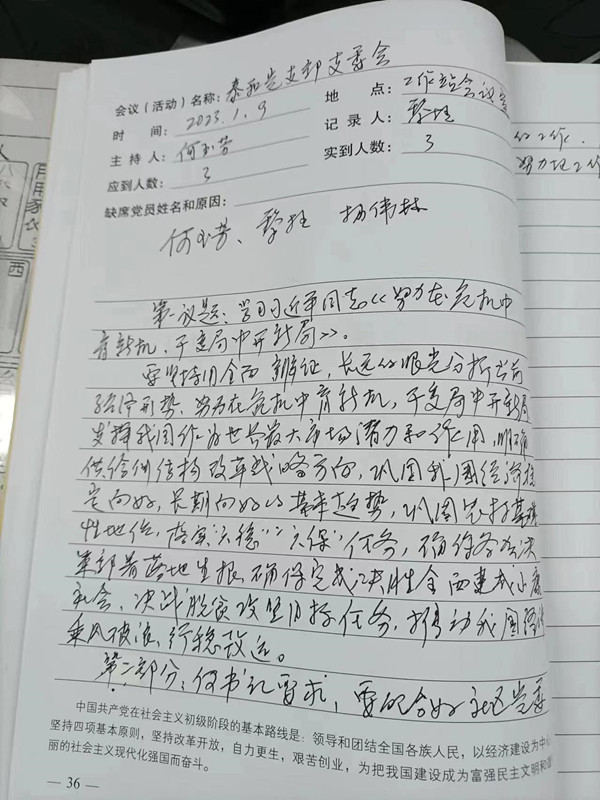 会议（活动）名称：泰和党支部支委会
时　间：2023.1.9　地　点：工作站会议室
主 持 人：何玉芳　记 录 人：黎姓
应到人数：3　实到人数：3
缺席党员姓名和原因：
何玉芳、黎 杨伟林
的工作，
努力把工作
第一议题：学习习近平同志《努力在危机中
育新机，于变局中开新局》。
要坚持用全面 辩证，长远的眼光分析当前
经济形势，努力在危机中育新机，于变局中开新局
发挥我国作为世界最大市场潜力和作用，明确
供给侧结构改革战略方向，巩固我国经济稳
定向好，长期向好的基本趋势，巩固农Position基础
性地位，落实“六稳”“六保”任务，确保各项决
策部署落地生根，确保完成决胜全面建成小康
社会、决战脱贫攻坚目标任务，推动我国经济
乘风破浪，行稳致远。
第二部分：何书记要求，要配合好社区党委
中国共产党在社会主义初级阶段的基本路线是：领导和团结全国各族人民，以经济建设为中心
坚持四项基本原则，坚持改革开放，自力更生，艰苦创业，为把我国建设成为富强民主文明和谐
丽的社会主义现代化强国而奋斗。
— 36 —